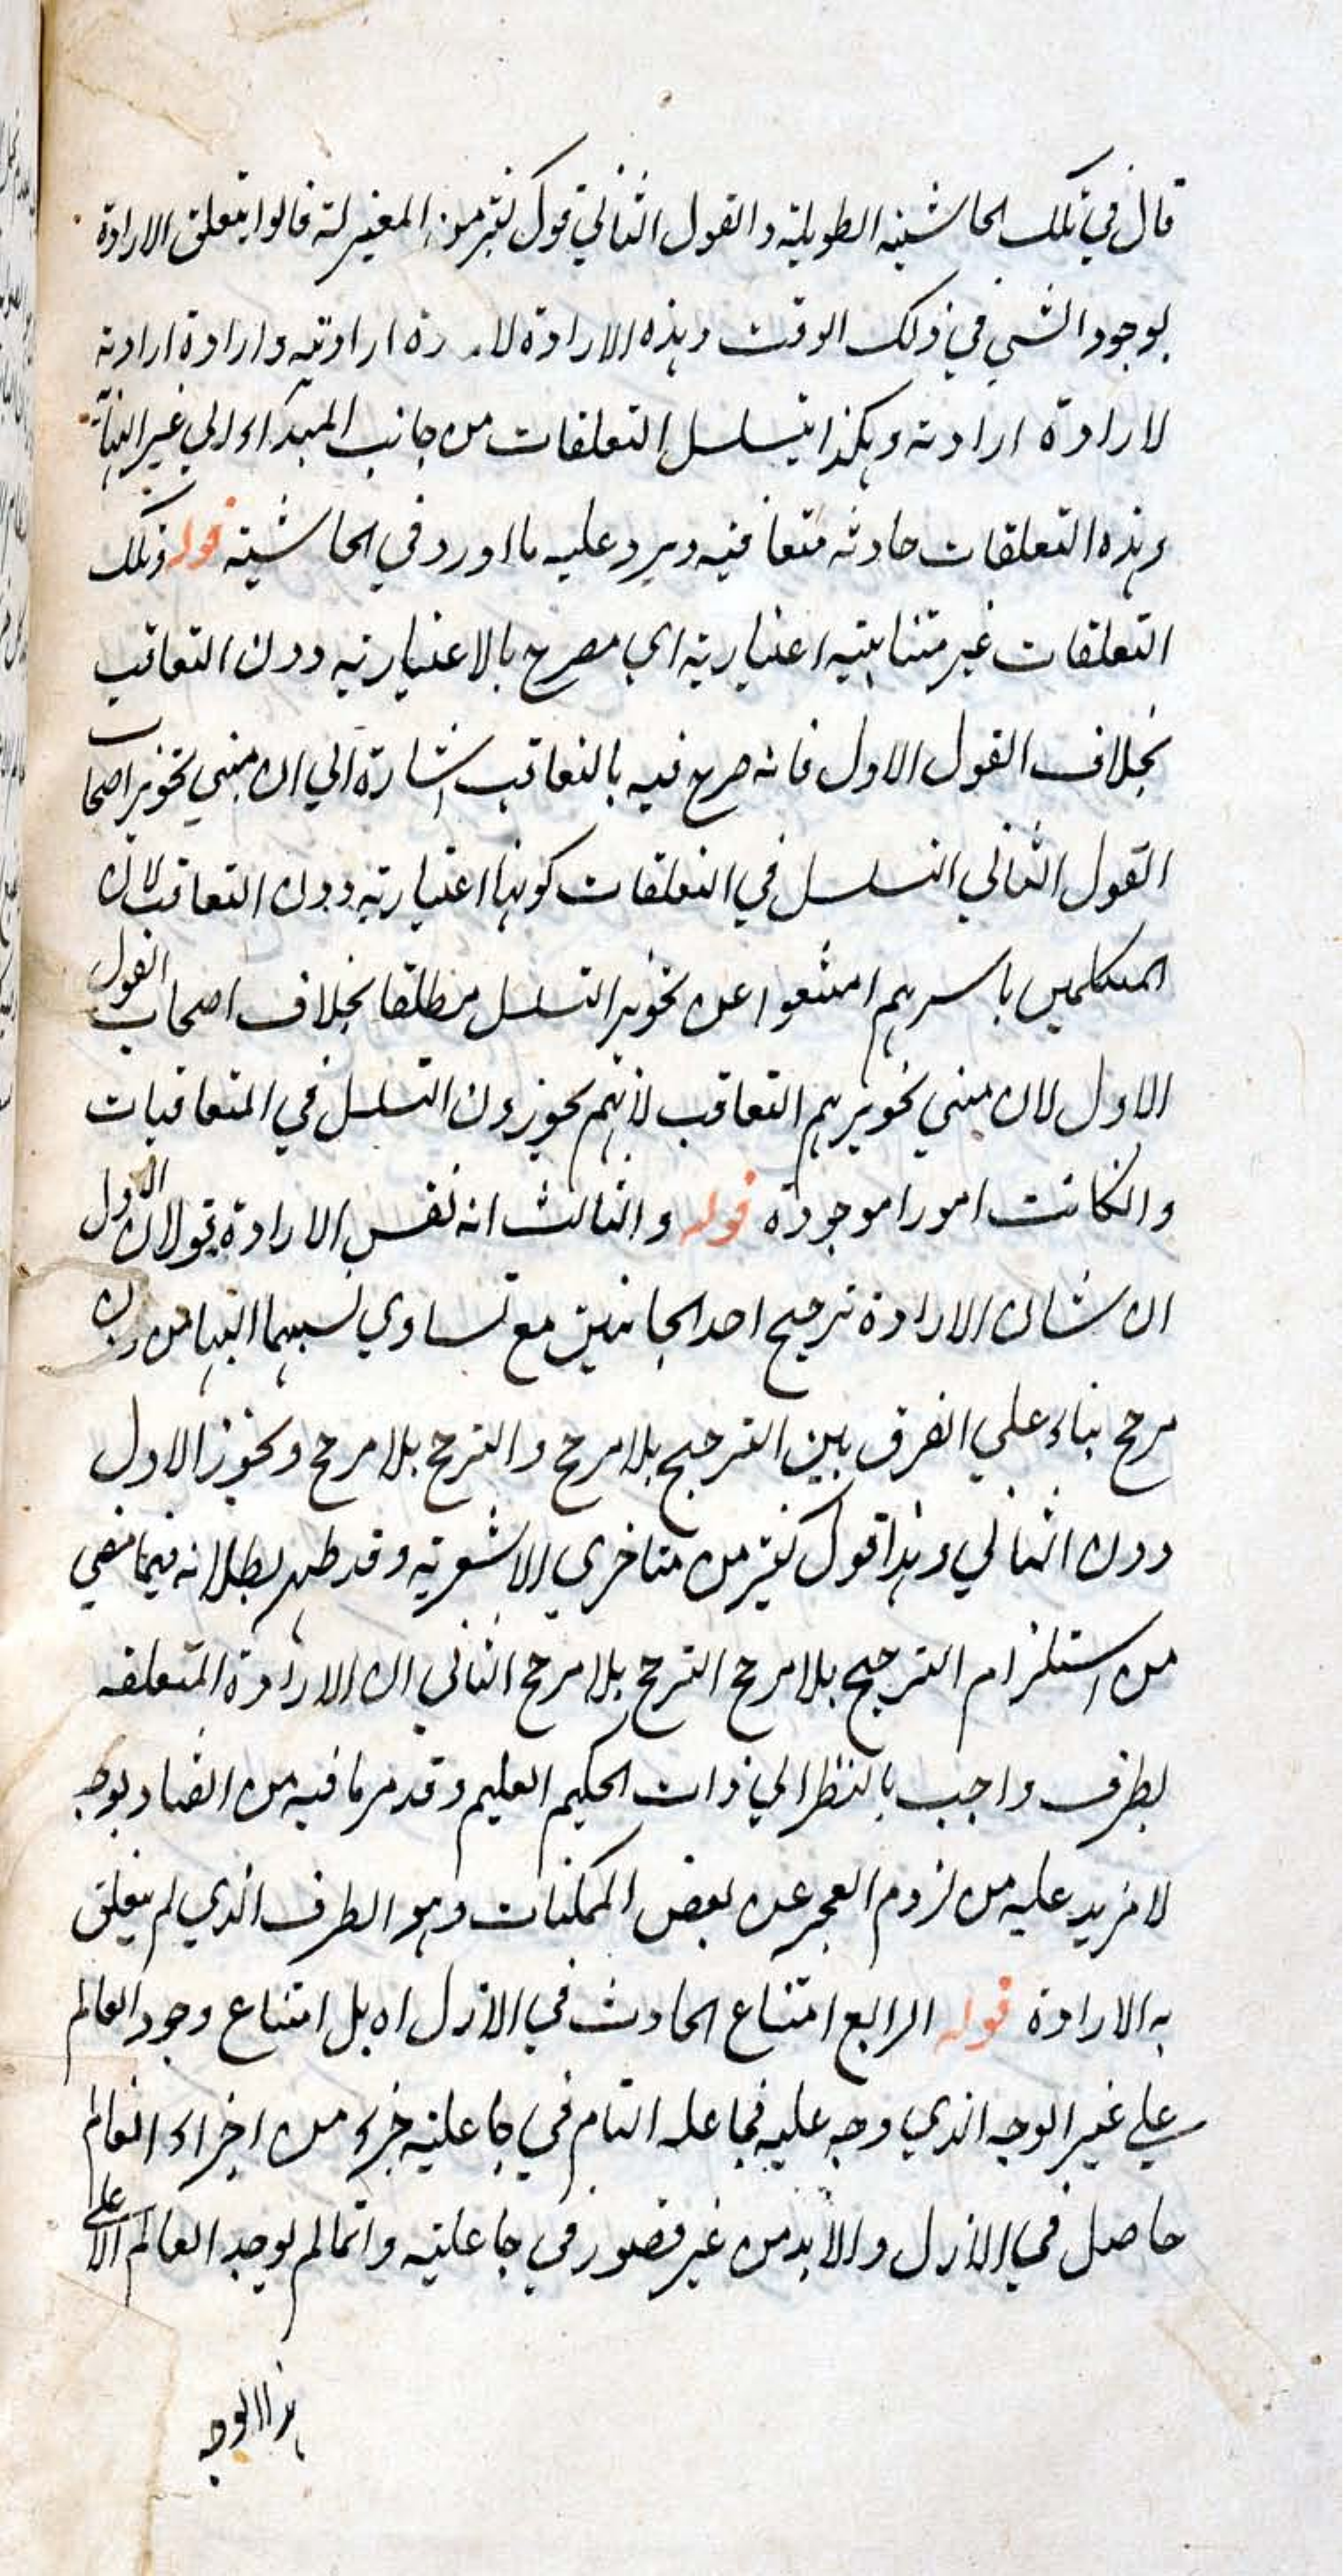 قال في تلك الحاشية الطويلة والقول الثاني قول كثير من المعتزلة قالوا يتعلق الارادة
بوجود الشي في ذلك الوقت وهذه الارادة لارادة ارادته وارادة ارادته
لارادة ارادته وهكذا يتسلسل التعلقات من جانب المبداء الي غير النهاية
وهذه التعلقات حادثة متعاقبة ويرد عليه ما اورد في الحاشية قوله وتلك
التعلقات غير متناهية اعتبارية اي مصرح بالاعتبارية دون التعاقب
بخلاف القول الاول فانه صرح فيه بالتعاقب اشارة الي ان مبني تجويز اصحاب
القول الثاني التسلسل في التعلقات كونها اعتبارية دون التعاقب لان
المتكلمين باسرهم امتنعوا عن تجويز التسلسل مطلقا بخلاف اصحاب القول
الاول لان مبني تجويزهم التعاقب لانهم يجوزون التسلسل في المتعاقبات
وانكانت امورا موجودة قوله والثالث انه نفس الارادة قولان الاول
ان شان الارادة ترجيح احد الجانبين مع تساوي نسبهما اليها من دون
مرجح بناء علي الفرق بين الترجيح بلا مرجح والترجح بلا مرجح وتجوز الاول
دون الثاني وهذا قول كثير من متاخري الاشعرية وقد ظهر بطلانه فيما مضي
من استلزام الترجيح بلا مرجح الترجح بلا مرجح الثاني ان الارادة المتعلقة
بطرف واجب بالنظر الي ذات الحكيم العليم وقد مر ما فيه من الفساد بوجه
لا مزيد عليه من لزوم العجز عن بعض الممكنات وهو الطرف الذي لم يتعلق
به الارادة قوله الرابع امتناع الحادث في الازل اه بل امتناع وجود العالم
علي غير الوجه الذي وجد عليه فجاعله التام في جاعلية جزء من اجزاء العالم
حاصل في الازل والابد من غير قصور في جاعليته وانما لم يوجد العالم الا علي
هذا الوجه